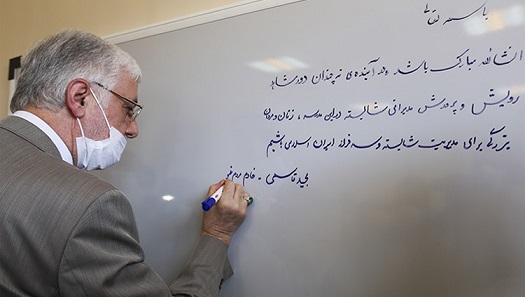 باسمه تعالی
انشاالله مبارک باشد و در آینده‌ی نه چندان دور شاهد
رویش و پرورش مدیرانی شایسته در این مدرسه، زنان و مردان
بزرگی برای مدیریت شایسته و سرفراز ایران اسلامی باشیم
قاسمی - خادم مردم